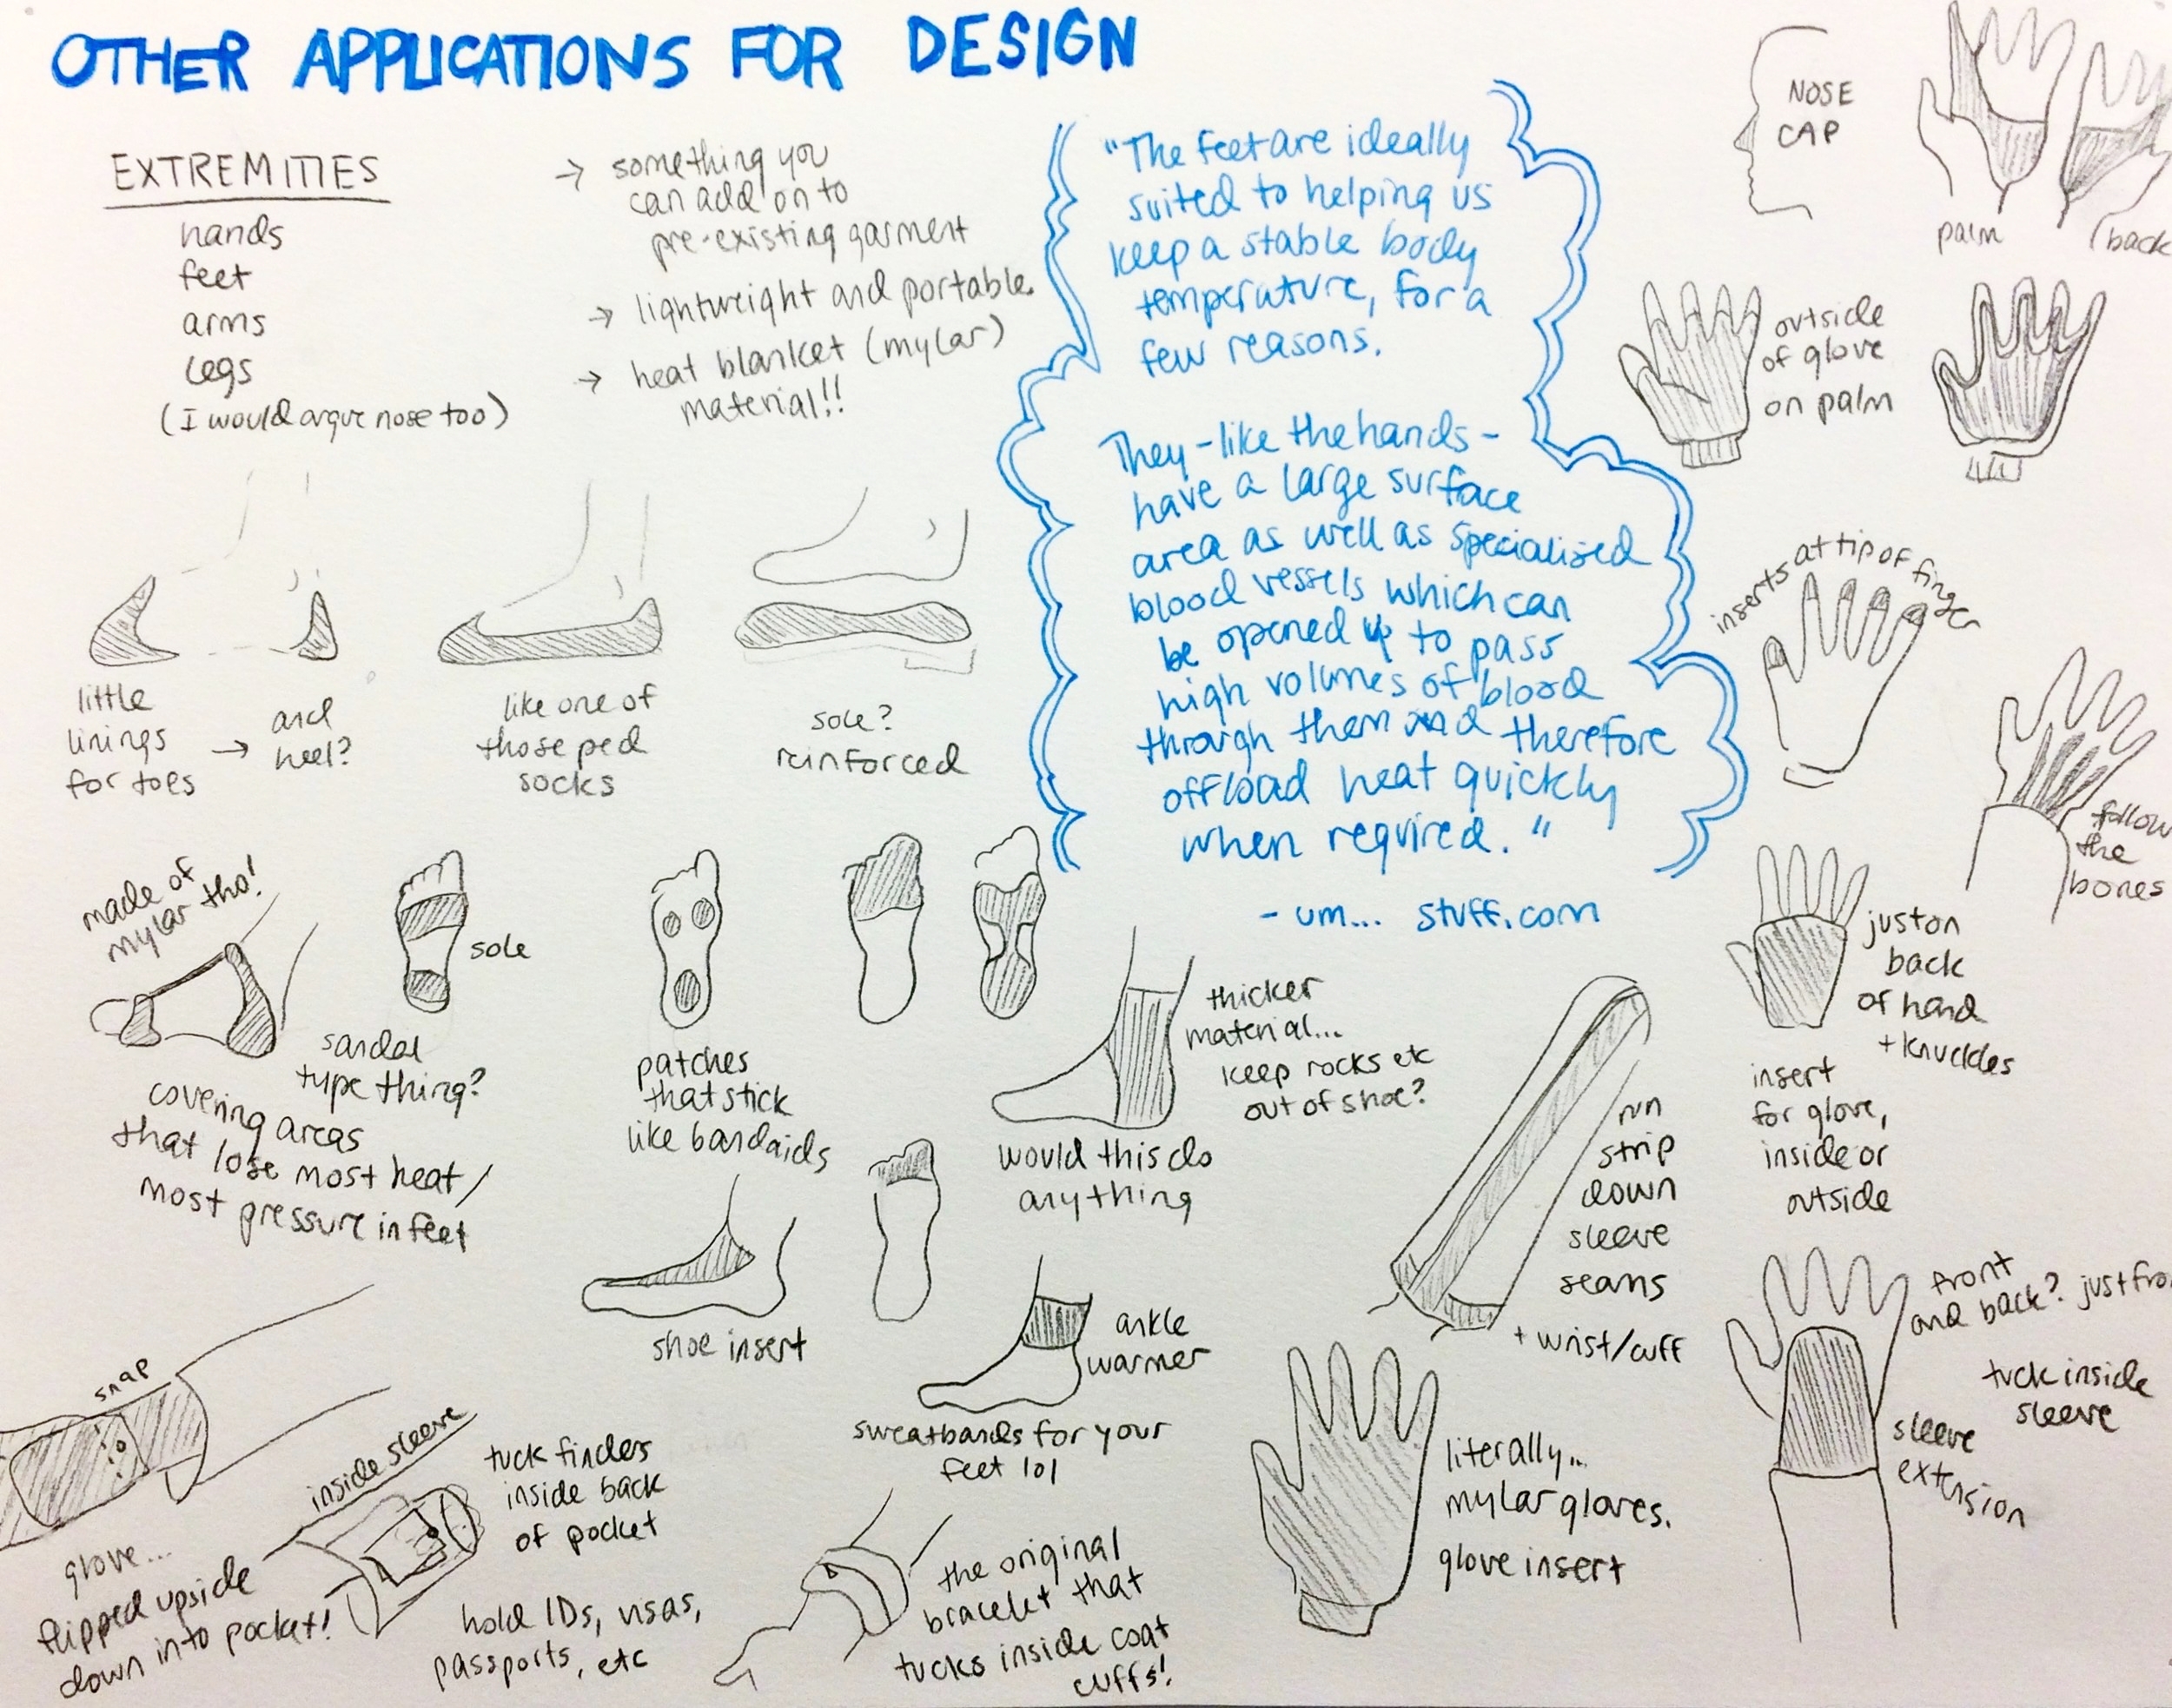 OTHER APPLICATIONS FOR DESIGN
EXTREMITIES
hands
feet
arms
legs
(I would argue nose too)
→ something you
can add on to
pre-existing garment
→ lightweight and portable.
→ heat blanket (mylar)
material!!
"The feet are ideally
suited to helping us
keep a stable body
temperature, for a
few reasons.
They - like the hands -
have a large surface
area as well as specialised
blood vessels which can
be opened up to pass
high volumes of blood
through them and therefore
offload heat quickly
when required."
- um... stuff.com
NOSE
CAP
palm
back
outside
of glove
on palm
inserts at tip of finger
follow
the
bones
little
linings
for toes
→ and
heel?
like one of
those ped
socks
sole?
reinforced
made of
mylar tho!
sandal
type thing?
covering areas
that lose most heat/
most pressure in feet
sole
patches
that stick
like bandaids
thicker
material...
keep rocks etc
out of shoe?
would this do
anything
just on
back
of hand
+ knuckles
insert
for glove,
inside or
outside
run
strip
down
sleeve
seams
+ wrist/cuff
shoe insert
ankle
warmer
sweatbands for your
feet lol
front
and back?
tuck inside
sleeve
sleeve
extension
snap
glove...
flipped upside
down into pocket!
inside sleeve
tuck findes
inside back
of pocket
hold IDs, visas,
passports, etc
the original
bracelet that
tucks inside coat
cuffs!
literally...
mylar gloves.
glove insert